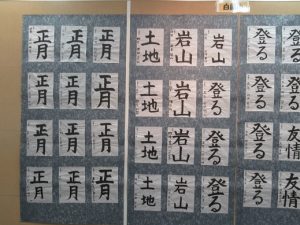 正月
正月
正月
正月
正月
正月
正月
正月
正月
正月
正月
正月
土地
岩山
岩山
土地
岩山
登る
土地
岩山
登る
土地
岩山
登る
登る
登る
登る
登る
登る
友情
登る
友情